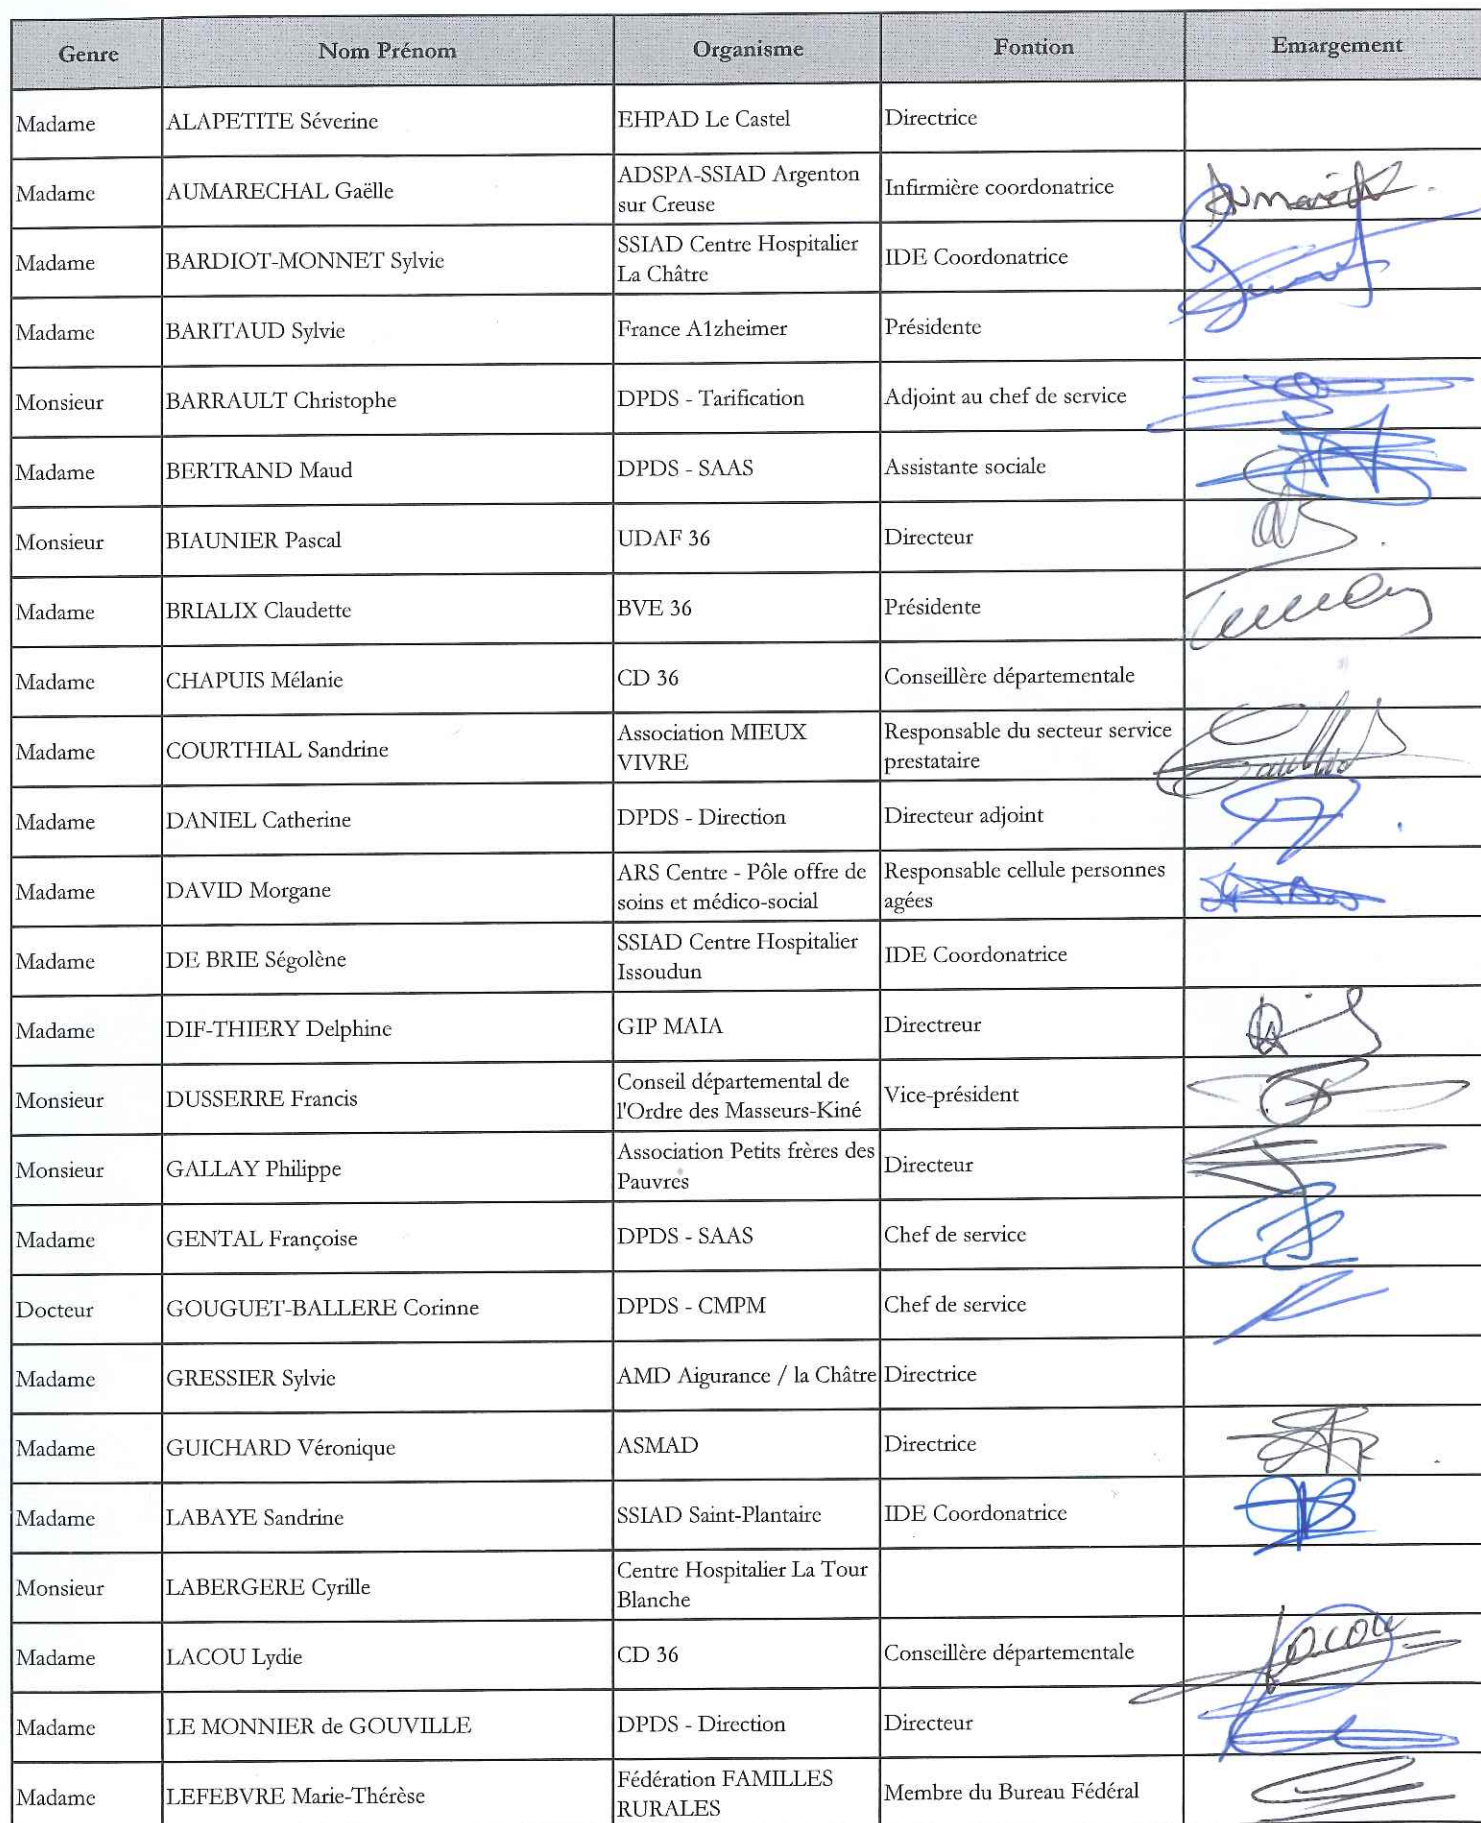 Genre Nom Prénom Organisme Fontion Emargement
Madame ALAPETITE Séverine EHPAD Le Castel Directrice
Madame AUMARECHAL Gaëlle ADSPA-SSIAD Argenton
sur Creuse Infirmière coordonatrice
Madame BARDIOT-MONNET Sylvie SSIAD Centre Hospitalier
La Châtre IDE Coordonatrice
Madame BARITAUD Sylvie France A1zheimer Présidente
Monsieur BARRAULT Christophe DPDS - Tarification Adjoint au chef de service
Madame BERTRAND Maud DPDS - SAAS Assistante sociale
Monsieur BIAUNIER Pascal UDAF 36 Directeur
Madame BRIALIX Claudette BVE 36 Présidente
Madame CHAPUIS Mélanie CD 36 Conseillère départementale
Madame COURTHIAL Sandrine Association MIEUX
VIVRE Responsable du secteur service
prestataire
Madame DANIEL Catherine DPDS - Direction Directeur adjoint
Madame DAVID Morgane ARS Centre - Pôle offre de
soins et médico-social Responsable cellule personnes
agées
Madame DE BRIE Ségolène SSIAD Centre Hospitalier
Issoudun IDE Coordonatrice
Madame DIF-THIERY Delphine GIP MAIA Directreur
Monsieur DUSSERRE Francis Conseil départemental de
l'Ordre des Masseurs-Kiné Vice-président
Monsieur GALLAY Philippe Association Petits frères des
Pauvres Directeur
Madame GENTAL Françoise DPDS - SAAS Chef de service
Docteur GOUGUET-BALLERE Corinne DPDS - CMPM Chef de service
Madame GRESSIER Sylvie AMD Aigurance / la Châtre Directrice
Madame GUICHARD Véronique ASMAD Directrice
Madame LABAYE Sandrine SSIAD Saint-Plantaire IDE Coordonatrice
Monsieur LABERGERE Cyrille Centre Hospitalier La Tour
Blanche
Madame LACOU Lydie CD 36 Conseillère départementale Lacou
Madame LE MONNIER de GOUVILLE DPDS - Direction Directeur
Madame LEFEBVRE Marie-Thérèse Fédération FAMILLES
RURALES Membre du Bureau Fédéral